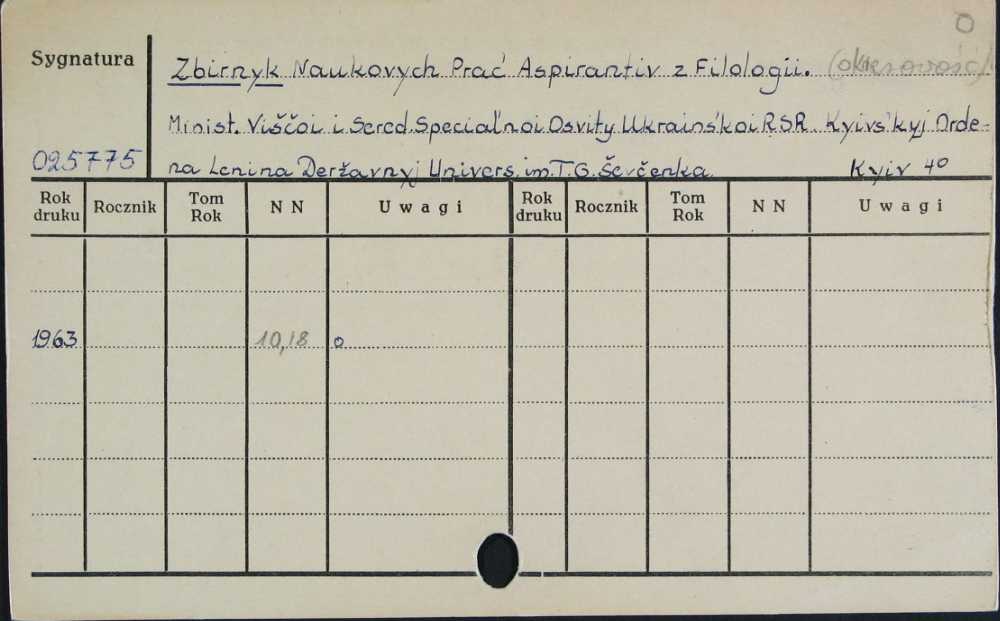 O
Sygnatura
Zbirnyk Naukovych Prać Aspirantiv z Filologii. (okresowość)
Minist. Viščoi i Sered. Special'noi Osvity Ukrains'koi RSR Kyivs'kyj Orde-
025775 na Lenina Deržavnyj Univers. im. T. G. Ševčenka. Kyiv 40
Rok druku Rocznik Tom Rok N N Uwagi Rok druku Rocznik Tom Rok N N Uwagi
1963 10,18 o